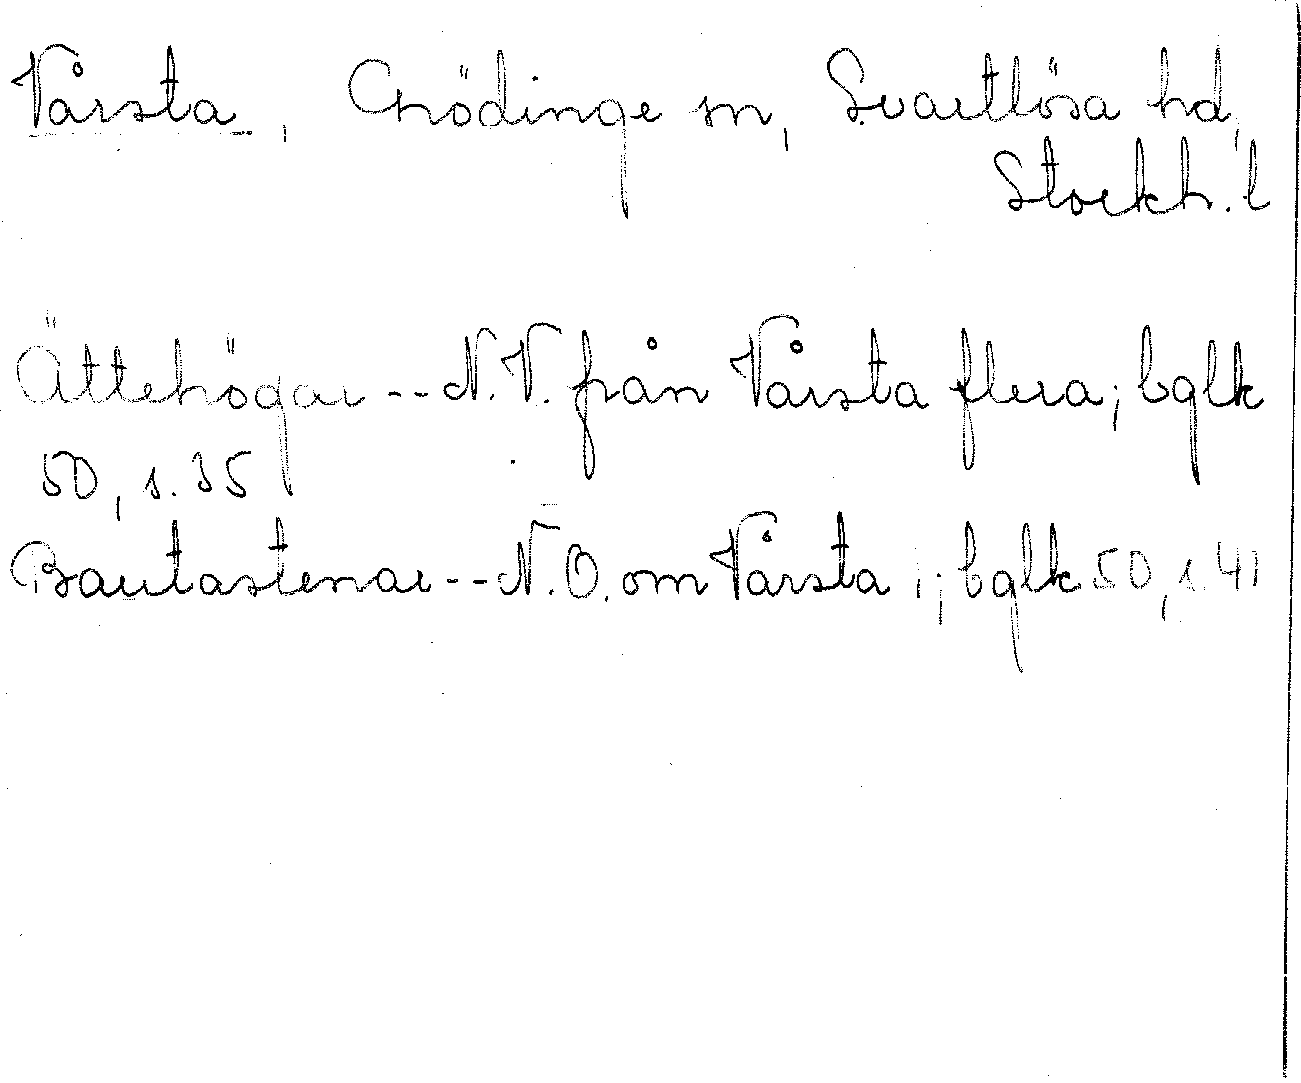 Vårsta, Grödinge sn, Svartlösa hd,
Stockh. l
Ättehögar -- N.V. från Vårsta flera; bglk
50, s. 35
Bautastenar -- N.O. om Vårsta i; bglk 50, s. 41